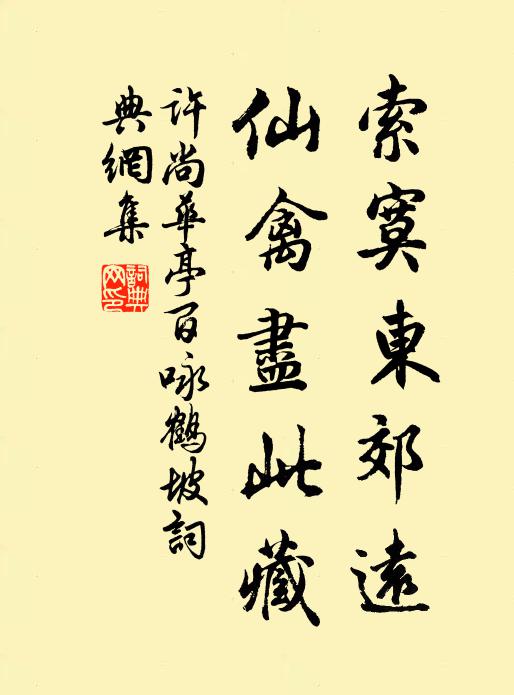 索寞東郊遠
仙禽盡此藏
許尚華亭百咏鶴坡詞
典網集
詞典
网印